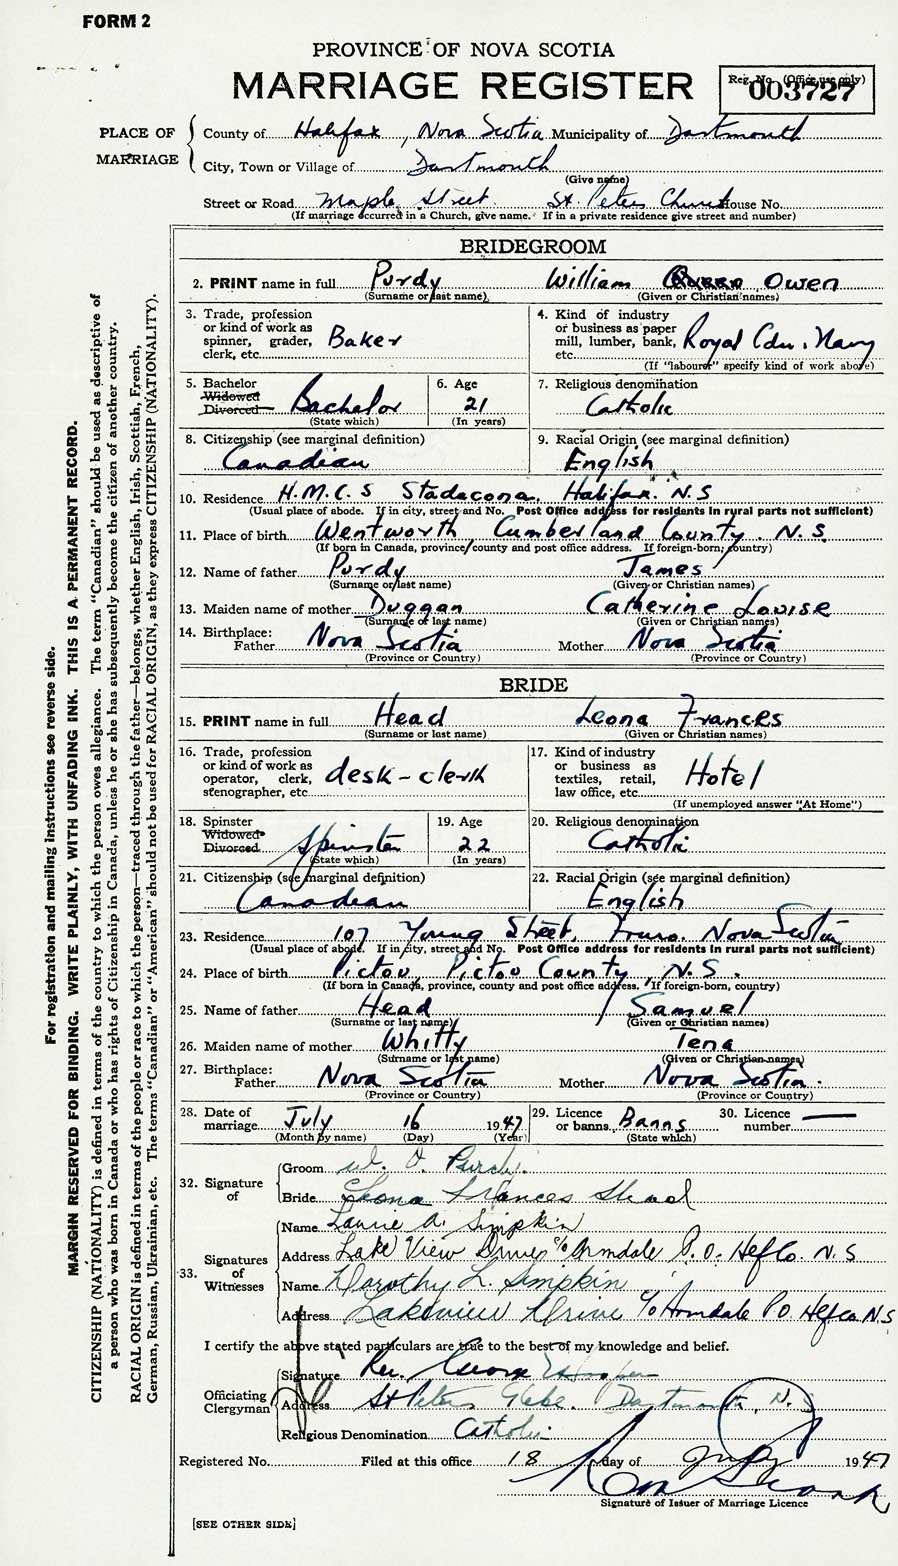 FORM 2
PROVINCE OF NOVA SCOTIA
MARRIAGE REGISTER
Reg. No. (Office use only)
003727
PLACE OF MARRIAGE
County of Halifax, Nova Scotia Municipality of Dartmouth
City, Town or Village of Dartmouth
(Give name)
Street or Road Maple Street. St. Peters Church House No.
(If marriage occurred in a Church, give name. If in a private residence give street and number)
BRIDEGROOM
2. PRINT name in full Purdy William Owen
(Surname or last name) (Given or Christian names)
3. Trade, profession or kind of work as spinner, grader, clerk, etc. Baker
4. Kind of industry or business as paper mill, lumber, bank, etc. Royal Cdn. Navy
(If "labourer" specify kind of work above)
5. Bachelor Widowed Divorced Bachelor
(State which)
6. Age 21
(In years)
7. Religious denomination
Catholic
8. Citizenship (see marginal definition)
Canadian
9. Racial Origin (see marginal definition)
English
10. Residence H.M.C.S Stadacona, Halifax. N.S
(Usual place of abode. If in city, street and No. Post Office address for residents in rural parts not sufficient)
11. Place of birth Wentworth, Cumberland County. N.S.
(If born in Canada, province, county and post office address. If foreign-born, country)
12. Name of father Purdy James
(Surname or last name) (Given or Christian names)
13. Maiden name of mother Duggan Catherine Louise
(Surname or last name) (Given or Christian names)
14. Birthplace:
Father Nova Scotia Mother Nova Scotia
(Province or Country) (Province or Country)
BRIDE
15. PRINT name in full Head Leona Frances
(Surname or last name) (Given or Christian names)
16. Trade, profession or kind of work as operator, clerk, stenographer, etc. desk-clerk
17. Kind of industry or business as textiles, retail, law office, etc. Hotel
(If unemployed answer "At Home")
18. Spinster Widowed Divorced Spinster
(State which)
19. Age 22
(In years)
20. Religious denomination
Catholic
21. Citizenship (see marginal definition)
Canadian
22. Racial Origin (see marginal definition)
English
23. Residence 107 Young Street, Truro. Nova Scotia
(Usual place of abode. If in city, street and No. Post Office address for residents in rural parts not sufficient)
24. Place of birth Pictou, Pictou County, N.S.
(If born in Canada, province, county and post office address. If foreign-born, country)
25. Name of father Head Samuel
(Surname or last name) (Given or Christian names)
26. Maiden name of mother Whitty Tena
(Surname or last name) (Given or Christian names)
27. Birthplace:
Father Nova Scotia Mother Nova Scotia.
(Province or Country) (Province or Country)
28. Date of marriage July 16 1947
(Month by name) (Day) (Year)
29. Licence or banns Banns
(State which)
30. Licence number
32. Signature of
Groom W. O. Purdy.
Bride Leona Frances Head
33. Signatures of Witnesses
Name Laurie A. Simpkin
Address Lake View Drive c/o Armdale P.O. Hfx Co. N.S
Name Dorothy L. Simpkin
Address Lakeview Drive c/o Armdale P.O. Hfx Co N.S
I certify the above stated particulars are true to the best of my knowledge and belief.
Officiating Clergyman
Signature Rev. George
Address St Peters Glebe. Dartmouth, N.S
Religious Denomination Catholic
Registered No. Filed at this office 18 day of July 1947
Signature of Issuer of Marriage Licence
[SEE OTHER SIDE]
For registration and mailing instructions see reverse side.
MARGIN RESERVED FOR BINDING. WRITE PLAINLY, WITH UNFADING INK. THIS IS A PERMANENT RECORD.
CITIZENSHIP (NATIONALITY) is defined in terms of the country to which the person owes allegiance. The term "Canadian" should be used as descriptive of
a person who was born in Canada or who has rights of Citizenship in Canada, unless he or she has subsequently become the citizen of another country.
RACIAL ORIGIN is defined in terms of the people or race to which the person—traced through the father—belongs, whether English, Irish, Scottish, French,
German, Russian, Ukrainian, etc. The terms "Canadian" or "American" should not be used for RACIAL ORIGIN, as they express CITIZENSHIP (NATIONALITY).